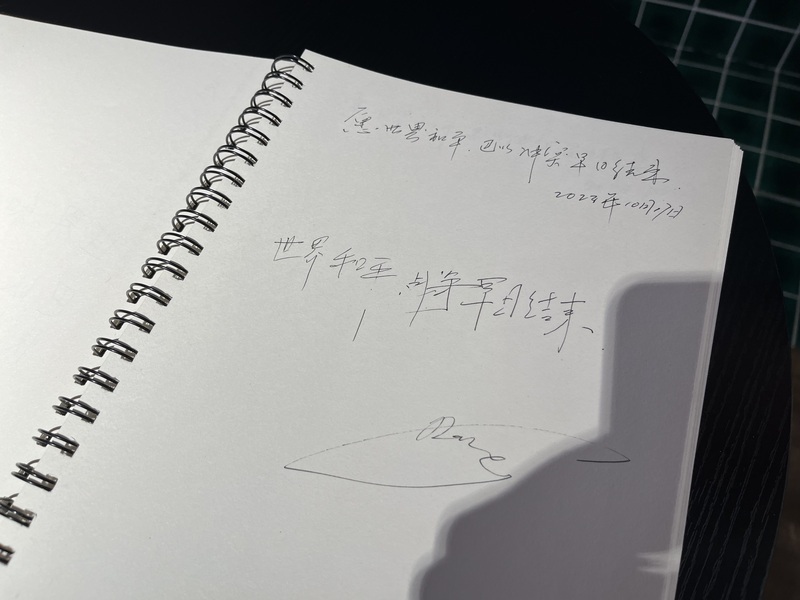 愿世界和平,巴以冲突早日结束.
2023年10月17日
世界和平
早日结束、